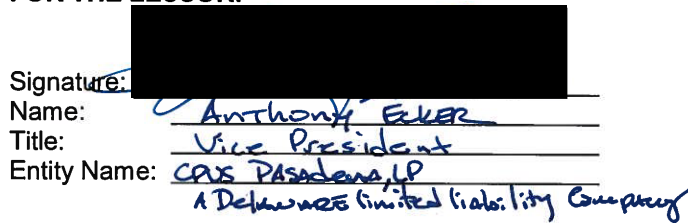 FOR THE LESSOR:
Signature:
Name: Anthony Ecker
Title: Vice President
Entity Name: CPUS Pasadena, LP
A Delaware limited liability Company